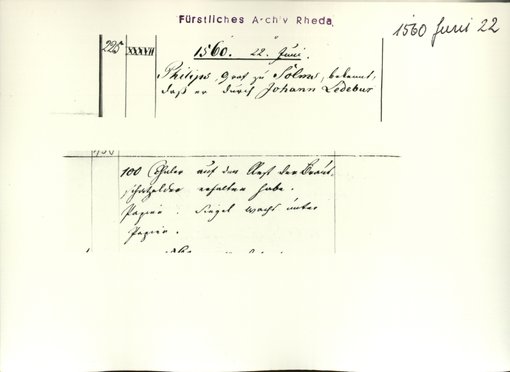 Fürstliches Archiv Rheda
1560 Juni 22
225 XXXVII
1560. 22. Juni.
Philipp, Graf zu Solms, bekennt,
daß er durch Johann Ledebur
100 Thaler auf den Rest der Braut-
schatzgelder erhalten habe.
Papier. Siegel wachs unter
Papier.